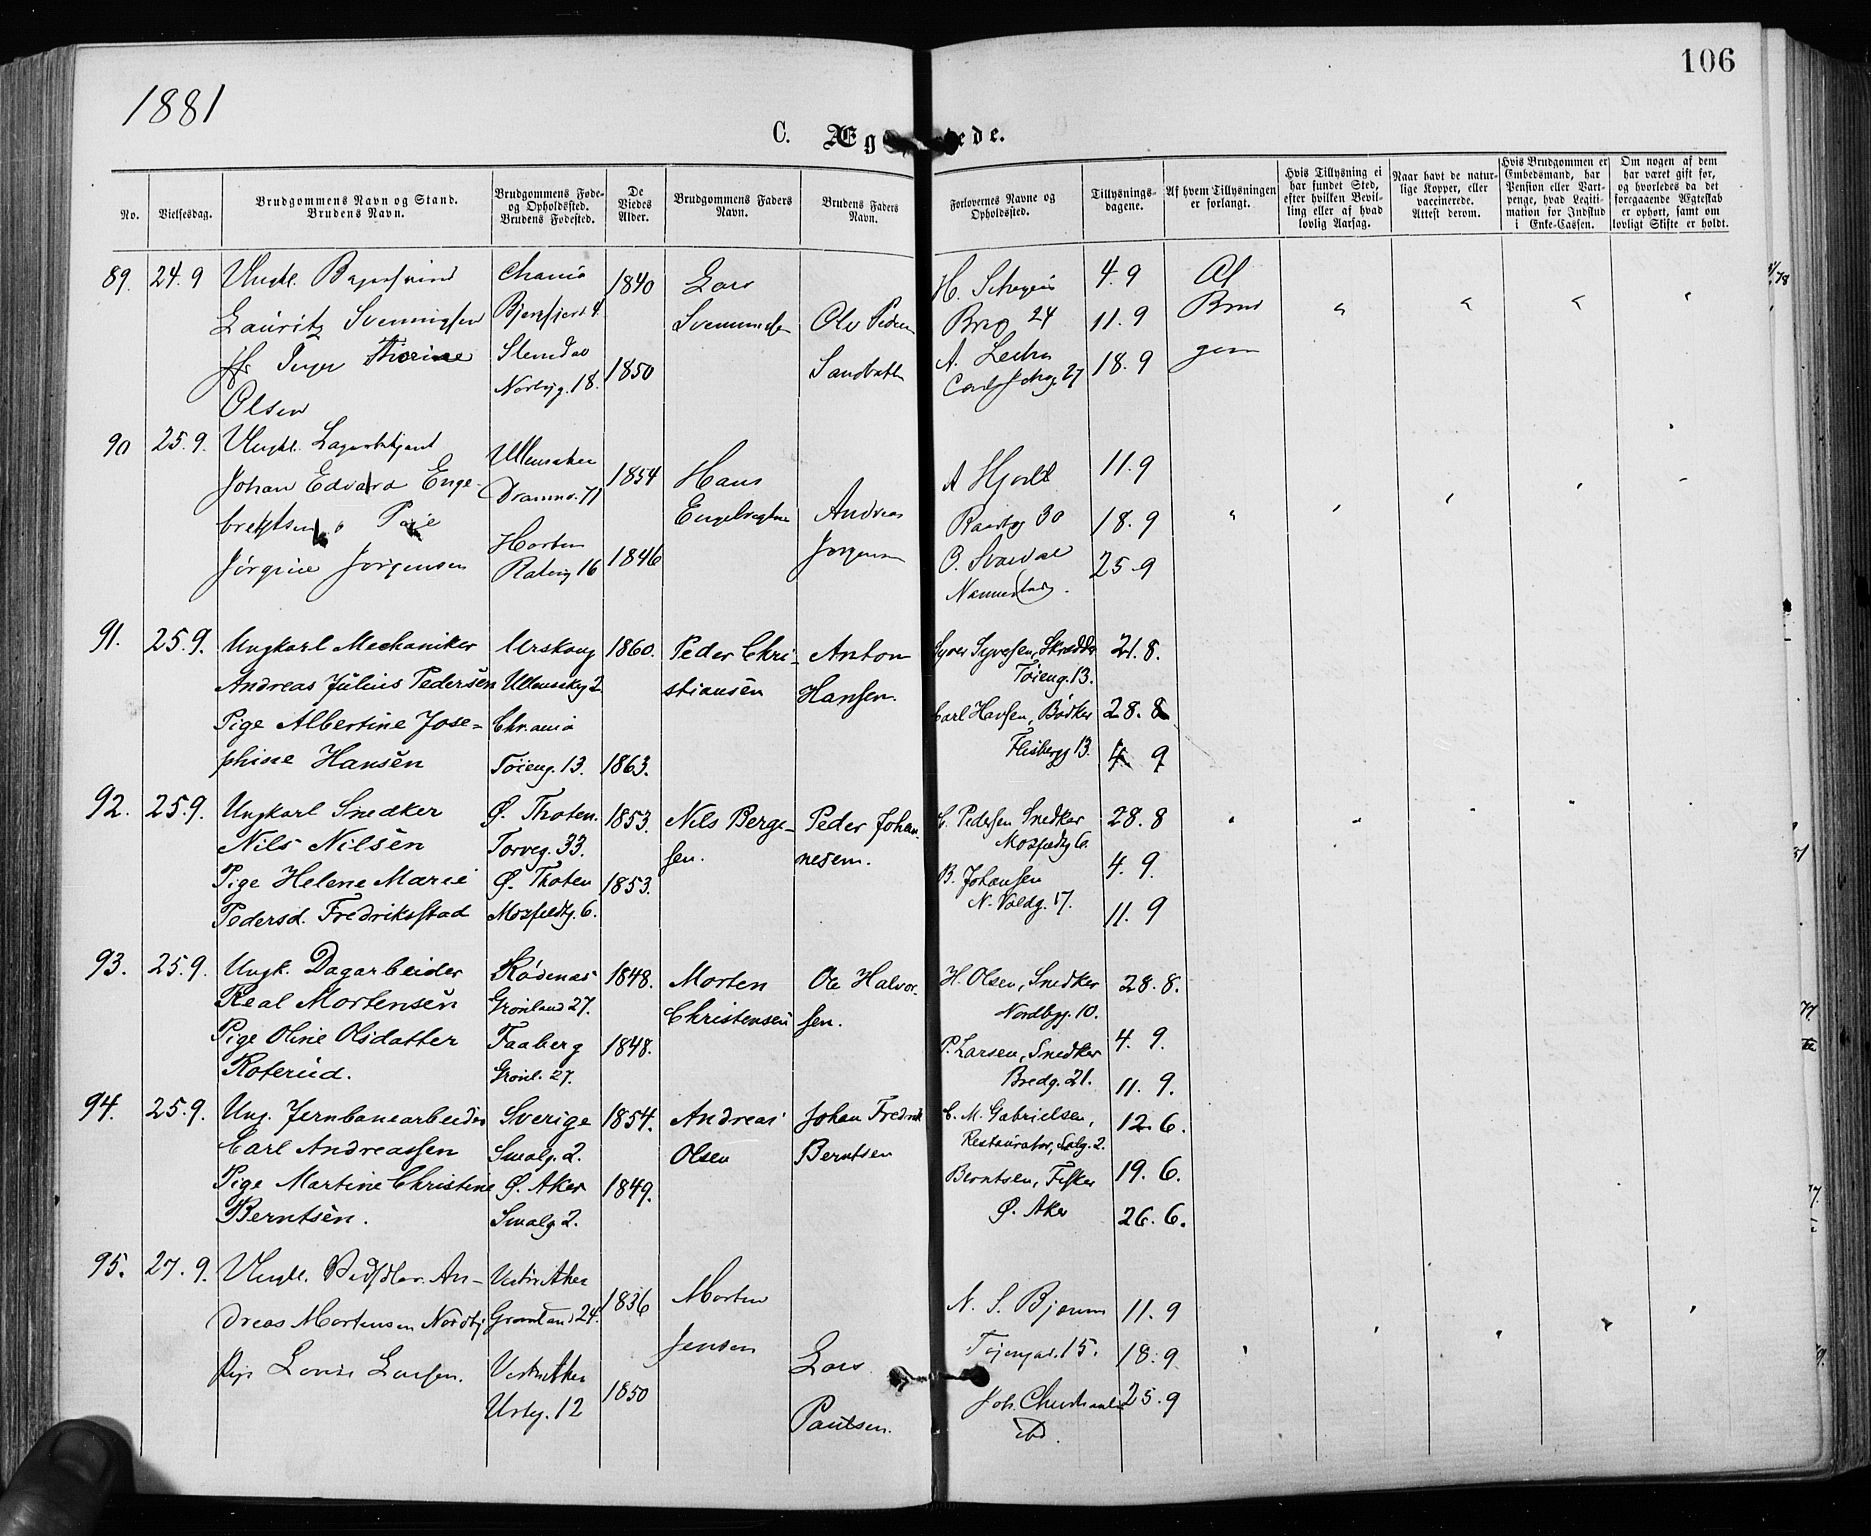 1881
106
C. Æg ede.
No.
Vielsesdag.
Brudgommens Navn og Stand.
Brudens Navn.
Brudgommens Føde-
og Opholdssted.
Brudens Fødested.
De
Viedes
Alder.
Brudgommens Faders
Navn.
Brudens Faders
Navn.
Forlovernes Navne og
Opholdssted.
Tillysnings-
dagene.
Af hvem Tillysningen
er forlangt.
Hvis Tillysning ei
har fundet Sted,
efter hvilken Bevil-
ling eller af hvad
lovlig Aarsag.
Naar havt de natur-
lige Kopper, eller
vaccinerede.
Attest derom.
Hvis Brudgommen er
Embedsmand, har
Pension eller Vart-
penge, hvad Legiti-
mation for Indskud
i Enke-Cassen.
Om nogen af dem
har været gift før,
og hvorledes da det
foregaaende Ægteskab
er ophørt, samt om
lovligt Skifte er holdt.
89. 24.9 Ungk. Chania 1840 Lars H. 4.9 Af
Lauritz Svenningsen 24 11.9 Brud
Inger Thorine 1850 Ole A. 18.9 gom
Olsen 18. 27
90 25.9. Ungk. Ullensaker 1854 Hans A 11.9
Johan Edvard Enge- Dramnv. 71 Andreas 30 18.9
bregtsen Pige Horten 1846 O. 25.9
Jørgine Jørgensen 16 Nannestad.
91. 25.9. Ungkarl Mechaniker Urskoug 1860. Peder Chri- Anton Syver Syversen, Skrædder 21.8.
Andreas Julius Pedersen 2 stiansen Hansen. Tøieng. 13.
Pige Albertine Jose- Chr.ania Carl Hansen, Bødker 28.8
phine Hansen Tøieng. 13. 1863. 13. 4. 9
92. 25.9. Ungkarl Snedker Ø. Thoten. 1853. Nils Berge- Peder Johan- Pedersen Snedker 28.8
Nils Nilsen Torveg. 33. sen. nesen. 6.
Pige Helene Marie Ø. Thoten 1853. B. Johansen 4. 9.
Pedersd. Fredriksstad 6. N. Voldg. 17. 11. 9
93. 25.9. Ungk. Dagarbeider Rødenæs 1848. Morten Ole Halvor- H. Olsen, Snedker 28.8.
Real Mortensen Grønland 27. Christensen sen. Nordbyg. 10.
Pige Oline Olsdatter Faaberg 1848. P. Larsen, Snedker 4. 9.
Roterud. Grønl. 27. Bredg. 21. 11. 9.
94. 25.9. Ung. Jernbanearbeider Sverige 1854. Andreas Johan Fredrik C. M. Gabrielsen, 12.6.
Carl Andreassen Smalg. 2. Olsen Berntsen Restauratør, 2.
Pige Martine Christine Ø. Aker 1849. Berntsen, Fisker 19. 6.
Berntsen. Smalg. 2. Ø. Aker 26. 6.
95. 27.9. Ungk. An- Vestre Aker 1836 Morten N. S. 11.9
dreas Mortensen Nordby Grønland 24. Jensen 15. 18.9
Pige Lovise Larsen. Vestre Aker 1850 Lars Joh. 25.9
12 Paulsen. ibd.